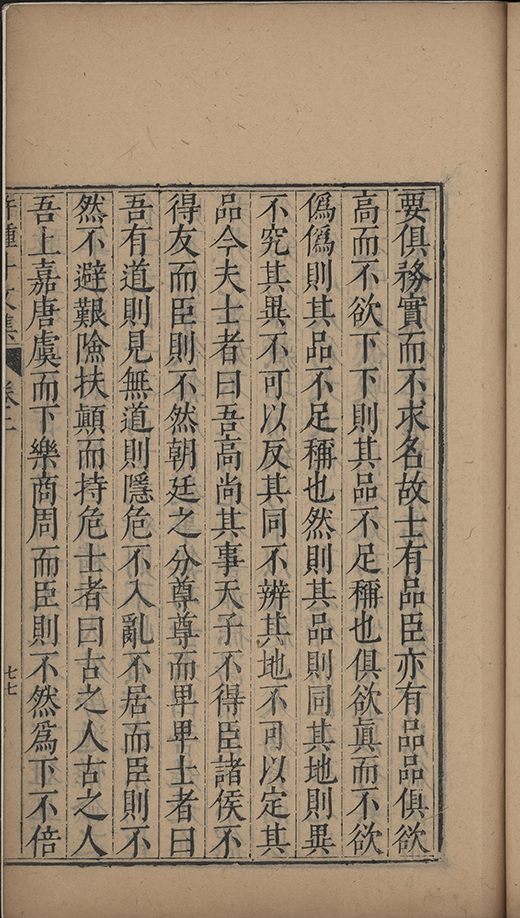 要俱務實而不求名故士有品臣亦有品品俱欲
高而不欲下下則其品不足稱也俱欲眞而不欲
僞僞則其品不足稱也然則其品則同其地則異
不究其異不可以反其同不辨其地不可以定其
品今夫士者曰吾高尚其事天子不得臣諸侯不
得友而臣則不然朝廷之分尊尊而卑卑士者曰
吾有道則見無道則隱危不入亂不居而臣則不
然不避艱險扶顛而持危士者曰古之人古之人
吾上嘉唐虞而下樂商周而臣則不然爲下不倍
文集
卷二
七七